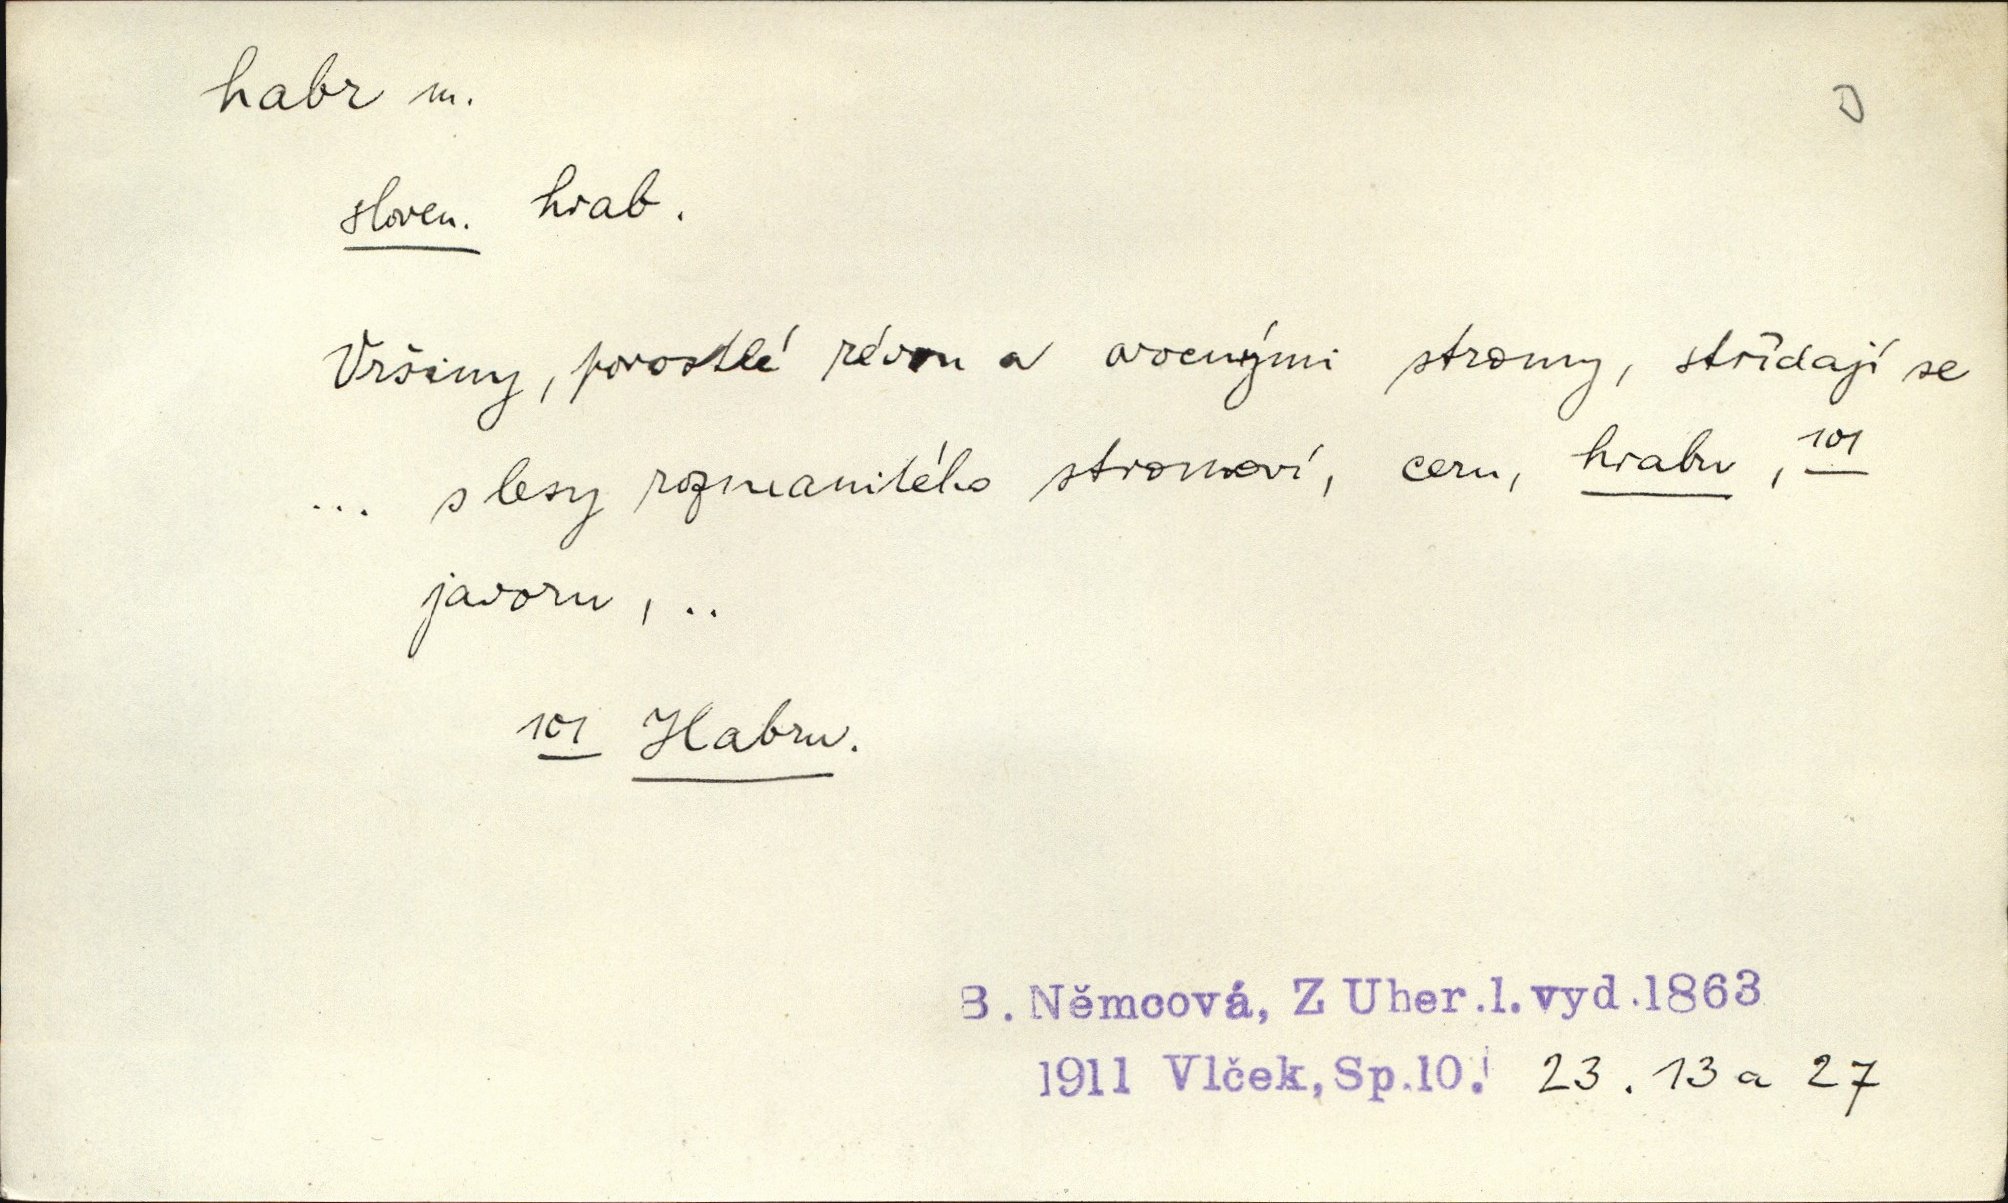 habr m.
sloven. hrab.
Vršiny, porostlé révou a ovocnými stromy, střídají se
... s lesy rozmanitého stromoví, ceru, hrabu, 101
javoru, ..
101 Habru.
B. Němcová, Z Uher.1.vyd.1863
1911 Vlček, Sp.10. 23. 13 a 27